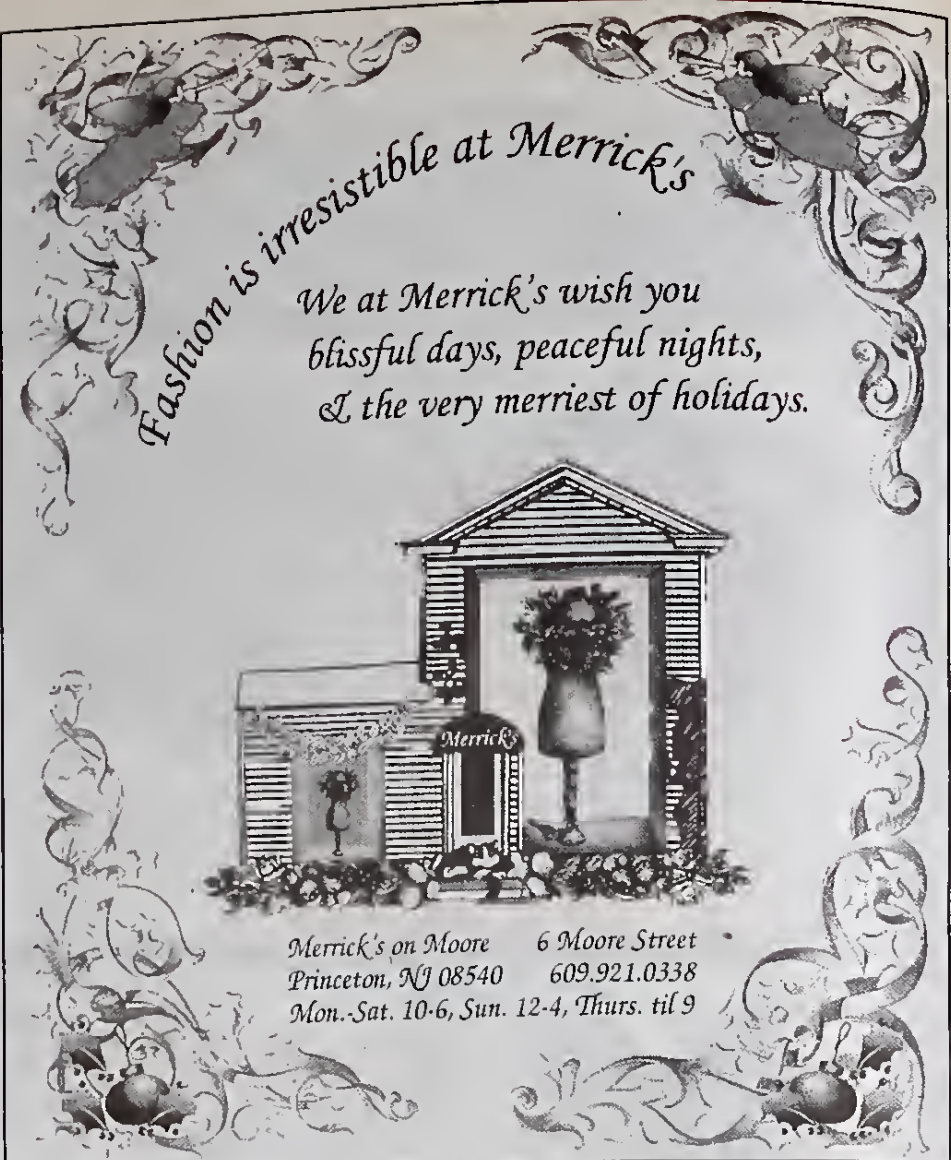 Fashion is irresistible at Merrick's
We at Merrick's wish you
blissful days, peaceful nights,
& the very merriest of holidays.
Merrick's
Merrick's on Moore 6 Moore Street
Princeton, NJ 08540 609.921.0338
Mon.-Sat. 10-6, Sun. 12-4, Thurs. til 9